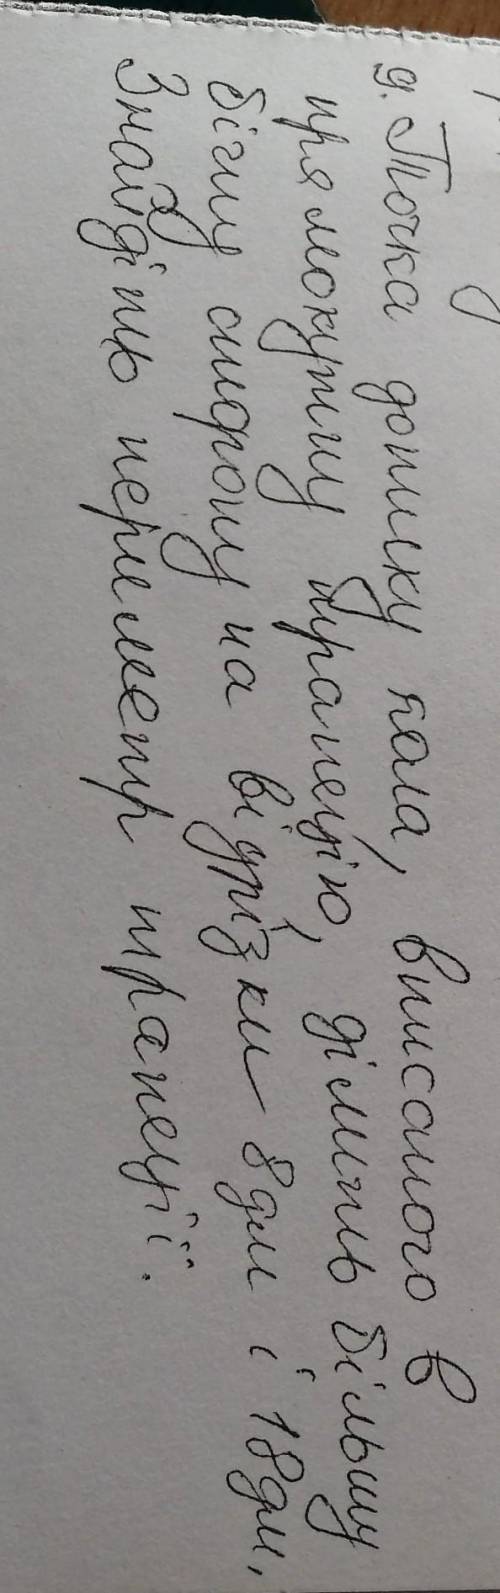 9. Точка дотику кола, вписаного в
прямокутну трапецію, ділить більшу
бічну сторону на відрізки 8дм і 18дм.
Знайдіть периметр трапеції.